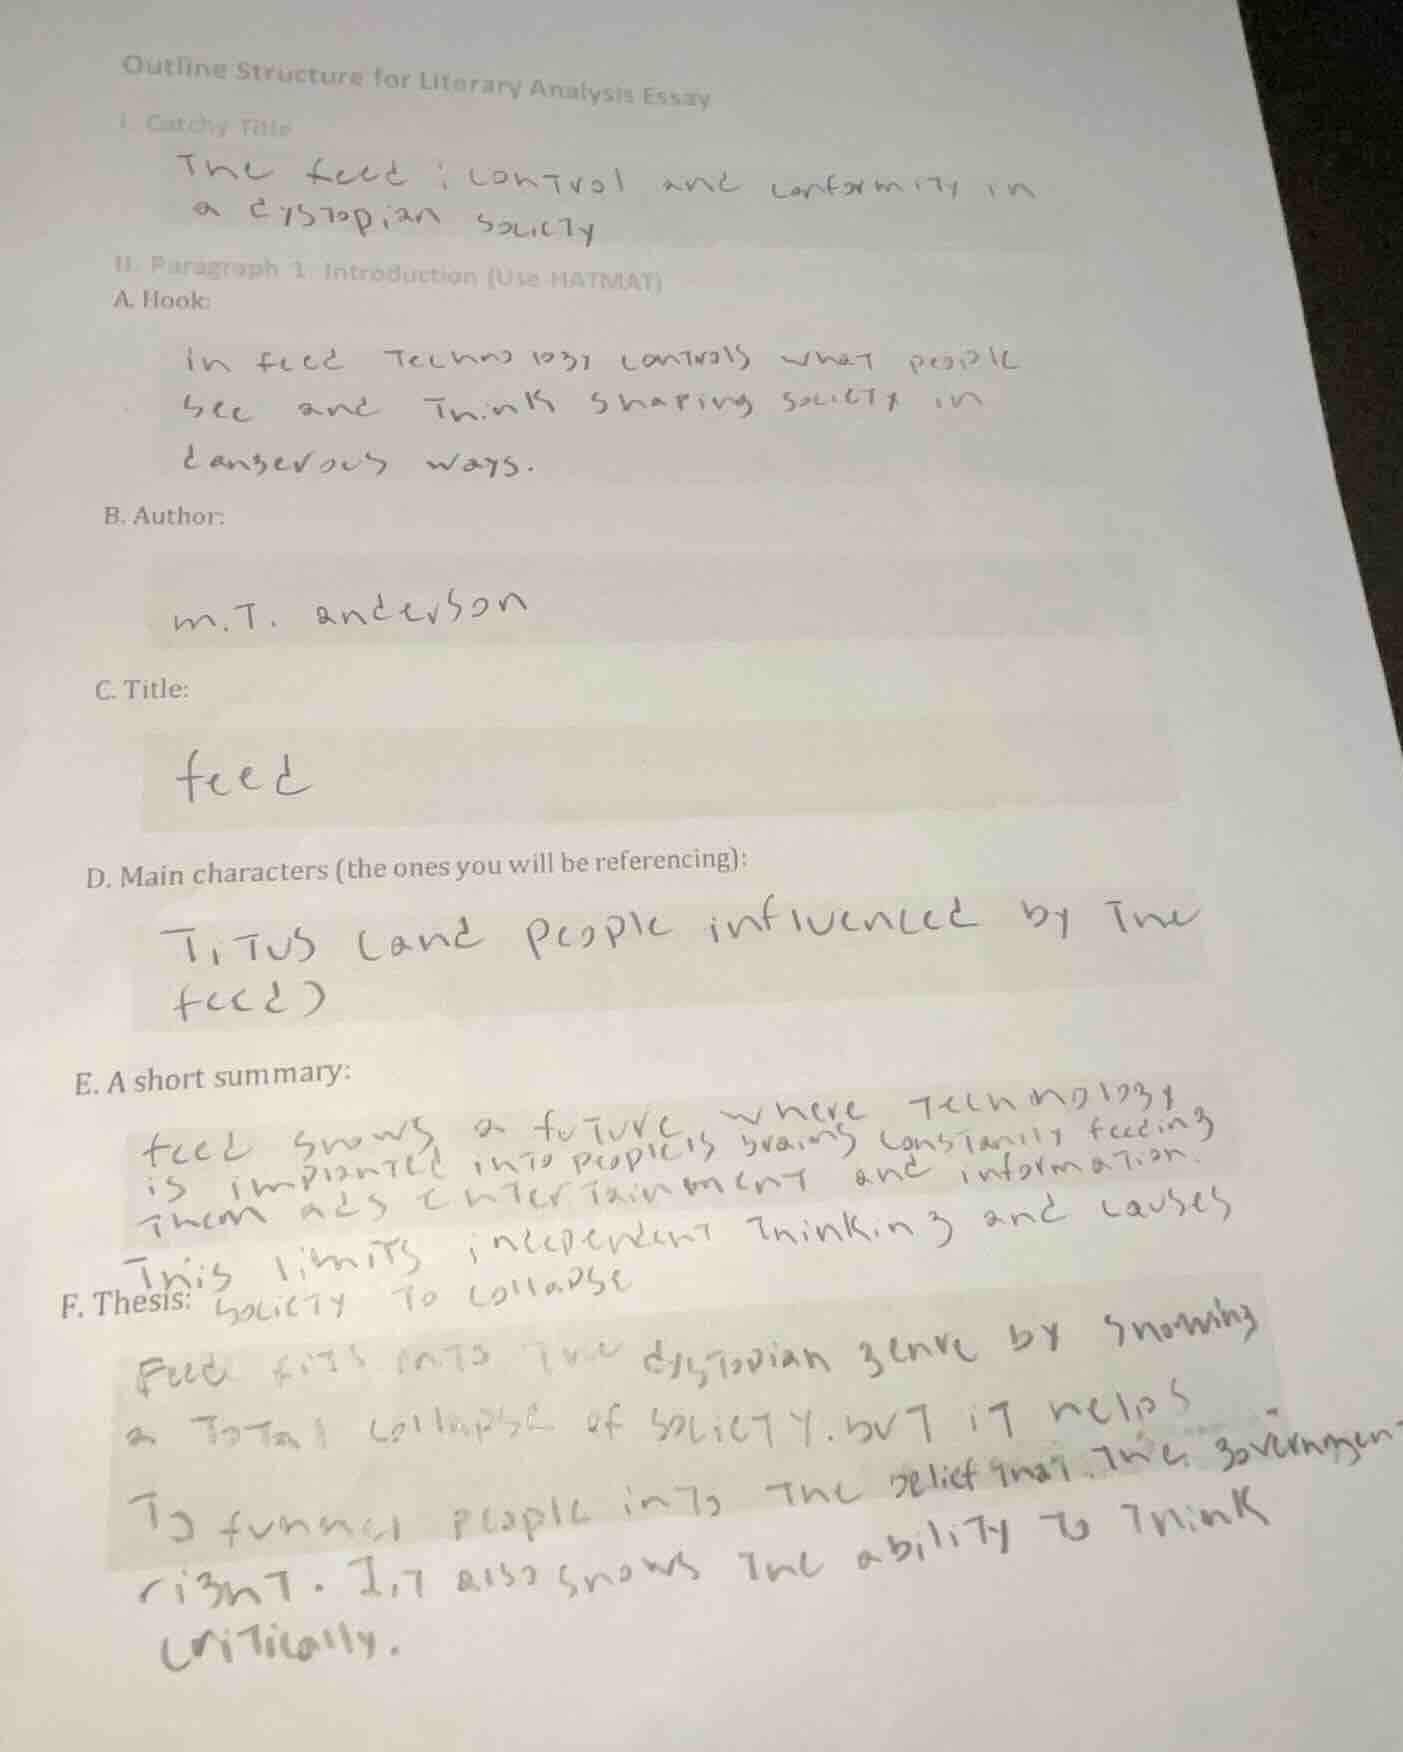 Outline Structure for Literary Analysis Essay
I. Catchy Title
The feed : control and conformity in
a dystopian society
II. Paragraph 1: Introduction (Use HATMAT)
A. Hook:
in feed Technology controls what people
see and Think shaping society in
dangerous ways.
B. Author:
m.T. anderson
C. Title:
feed
D. Main characters (the ones you will be referencing):
TiTus (and people influenced by The
feed)
E. A short summary:
feed shows a future where Technology
is implanted into people's brains constantly feeding
Them ads entertainment and information.
This limits independent Thinking and causes
F. Thesis: society To collapse
Feed fits into The dystopian genre by showing
a Total collapse of society. but it helps
To funnel people into The belief That The government
right. It also shows The ability to Think
critically.